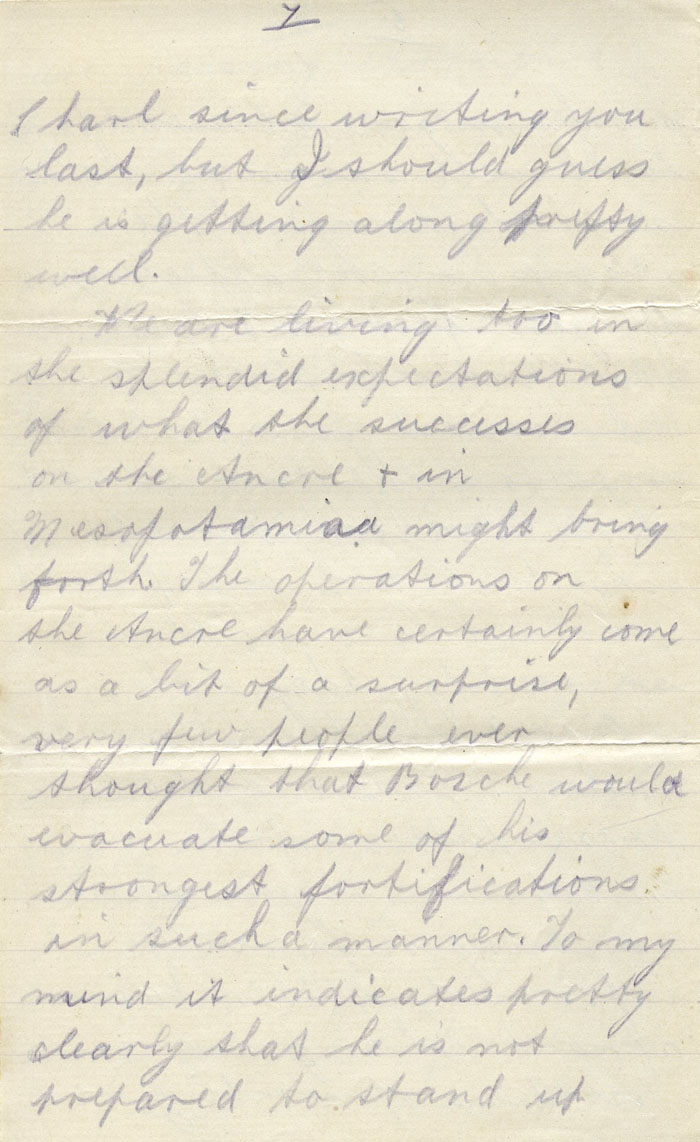 7
I hard since writing you
last, but I should guess
he is getting along pretty
well.
We are living too in
the splendid expectations
of what the successes
on the Ancre + in
Mesopotamia might bring
forth. The operations on
the Ancre have certainly come
as a bit of a surprise,
very few people ever
thought that Bosche would
evacuate some of his
strongest fortifications
in such a manner. To my
mind it indicates pretty
clearly that he is not
prepared to stand up